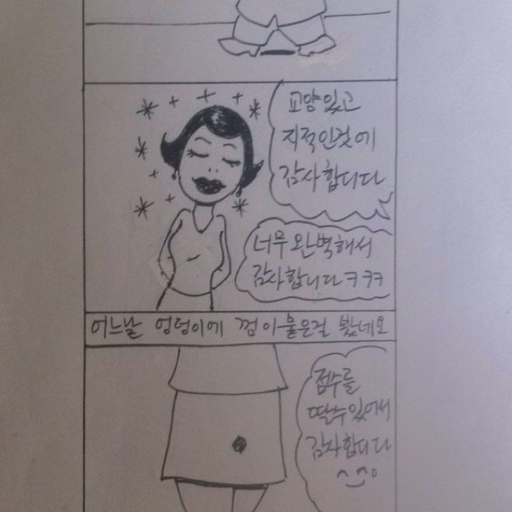 교양있고
지적인것에
감사합니다
너무 완벽해서
감사합니다 ㅋㅋㅋ
어느날 엉덩이에 껌이 붙은걸 봤네요
점수를
딸수있어서
감사합니다
^^